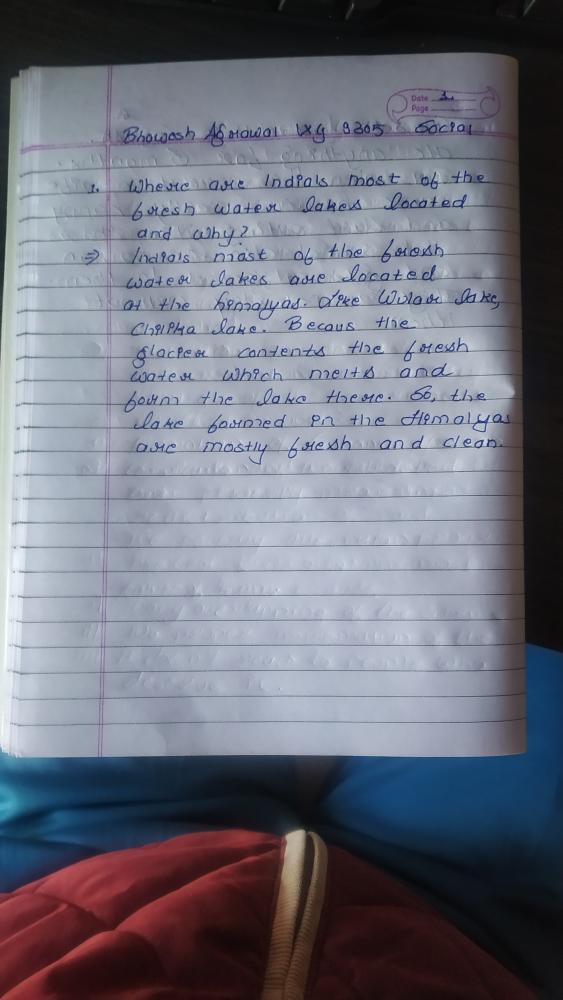 Date 1
Page
Bhawesh Agrawal IXg 9305 Social
1. Where are India's most of the
fresh water lakes located
and why?
⇒ India's most of the fresh
water lakes are located
at the himalyas. Like Wular lake,
lake. Becaus the
glacier contents the fresh
water which melts and
form the lake there. So, the
lake formed in the Himalyas
are mostly fresh and clean.